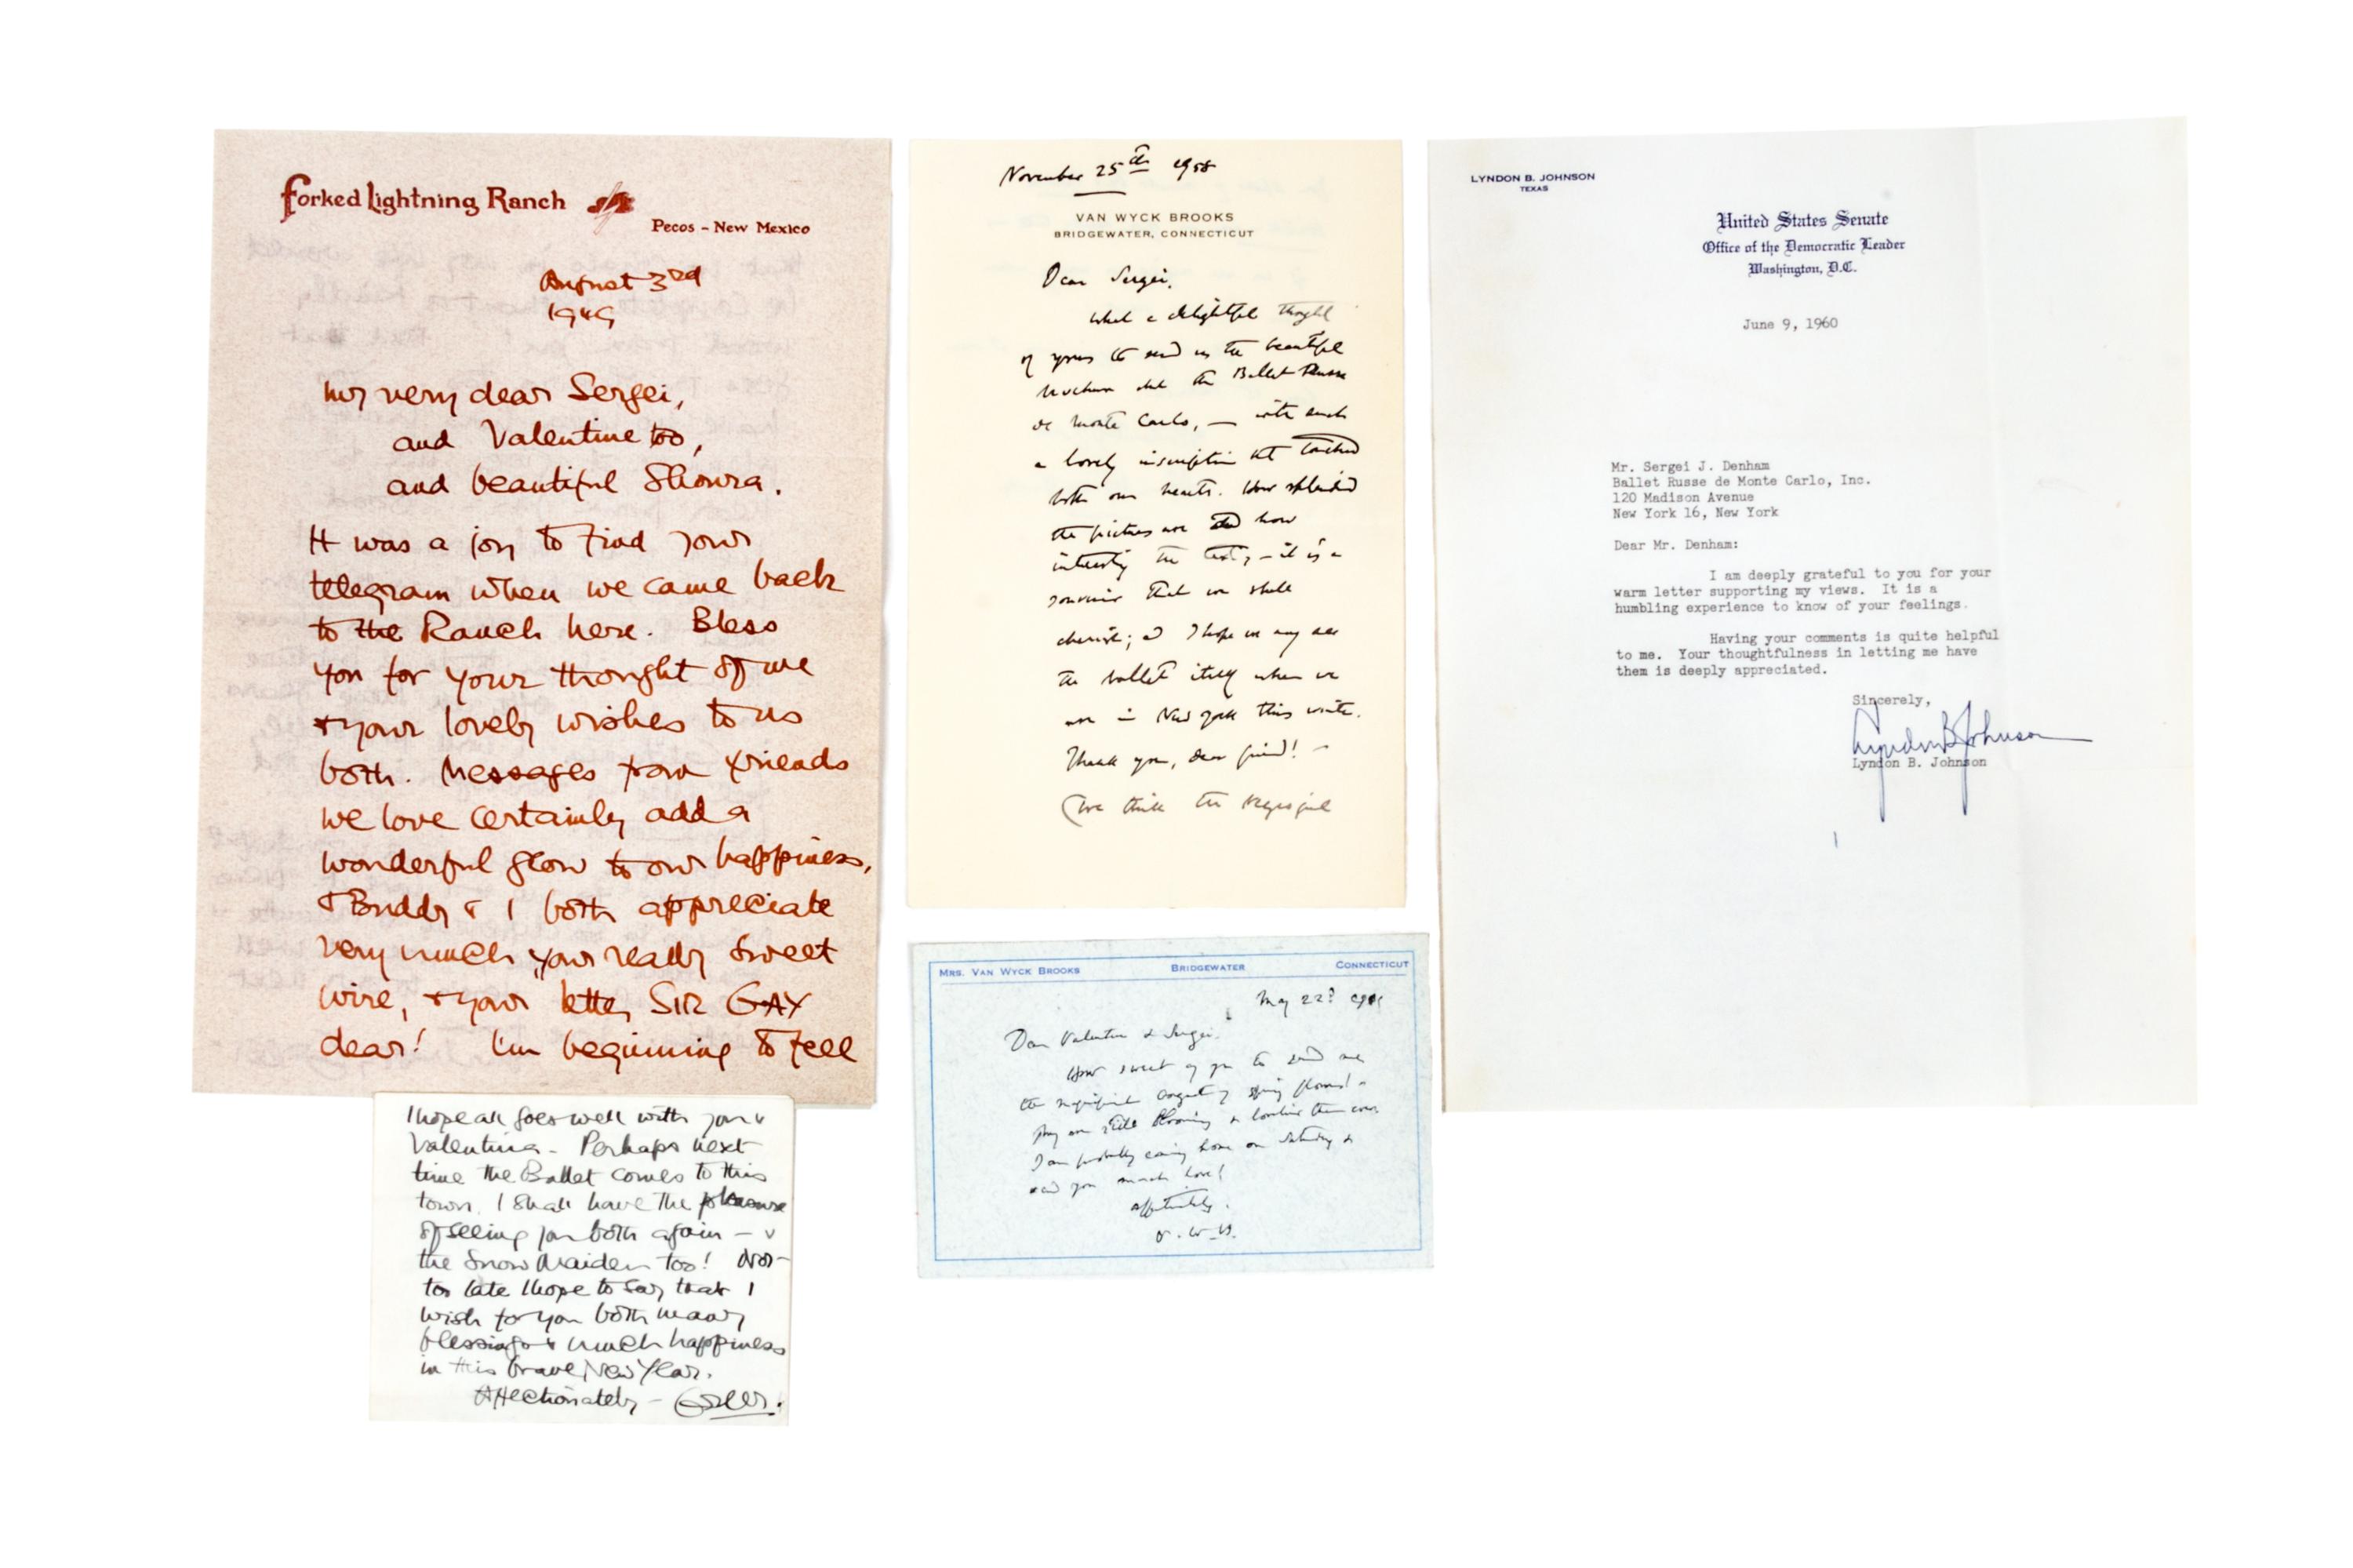 Forked Lightning Ranch
Pecos - New Mexico
August 3rd
1949
My very dear Sergei,
and Valentine too,
and beautiful Shoura.
It was a joy to find your
telegram when we came back
to the Ranch here. Bless
you for your thought of me
+ your lovely wishes to us
both. Messages from friends
we love certainly add a
wonderful glow to our happiness,
+ Buddy + I both appreciate
very much your really sweet
wire, + your letter, SIR GAY
dear! I'm beginning to feel
I hope all goes well with you &
Valentina - Perhaps next
time the Ballet comes to this
town. I shall have the pleasure
of seeing you both again - &
the Snow Maiden too! Not
too late I hope to say that I
wish for you both many
blessings & much happiness
in this brave New Year.
Affectionately -
November 25th 1958
VAN WYCK BROOKS
BRIDGEWATER, CONNECTICUT
Dear Sergei,
What a delightful thought
of yours to send us the beautiful
brochure about the Ballet Russe
de Monte Carlo, — with such
a lovely inscription that touched
both our hearts. How splendid
the pictures are and how
interesting the text, - it is a
souvenir that we shall
cherish; and I hope we may see
the ballet itself when we
are in New York this winter.
Thank you, dear friend! -
(We think the
MRS. VAN WYCK BROOKS BRIDGEWATER CONNECTICUT
May 22
Dear Valentine & Sergei,
How sweet of you to send me
the magnificent bouquet of spring flowers! -
They are still blooming &
I am probably coming home on Saturday &
send you much love!
affectionately,
V. W. B.
LYNDON B. JOHNSON
TEXAS
United States Senate
Office of the Democratic Leader
Washington, D.C.
June 9, 1960
Mr. Sergei J. Denham
Ballet Russe de Monte Carlo, Inc.
120 Madison Avenue
New York 16, New York
Dear Mr. Denham:
I am deeply grateful to you for your
warm letter supporting my views. It is a
humbling experience to know of your feelings.
Having your comments is quite helpful
to me. Your thoughtfulness in letting me have
them is deeply appreciated.
Sincerely,
Lyndon B Johnson
Lyndon B. Johnson